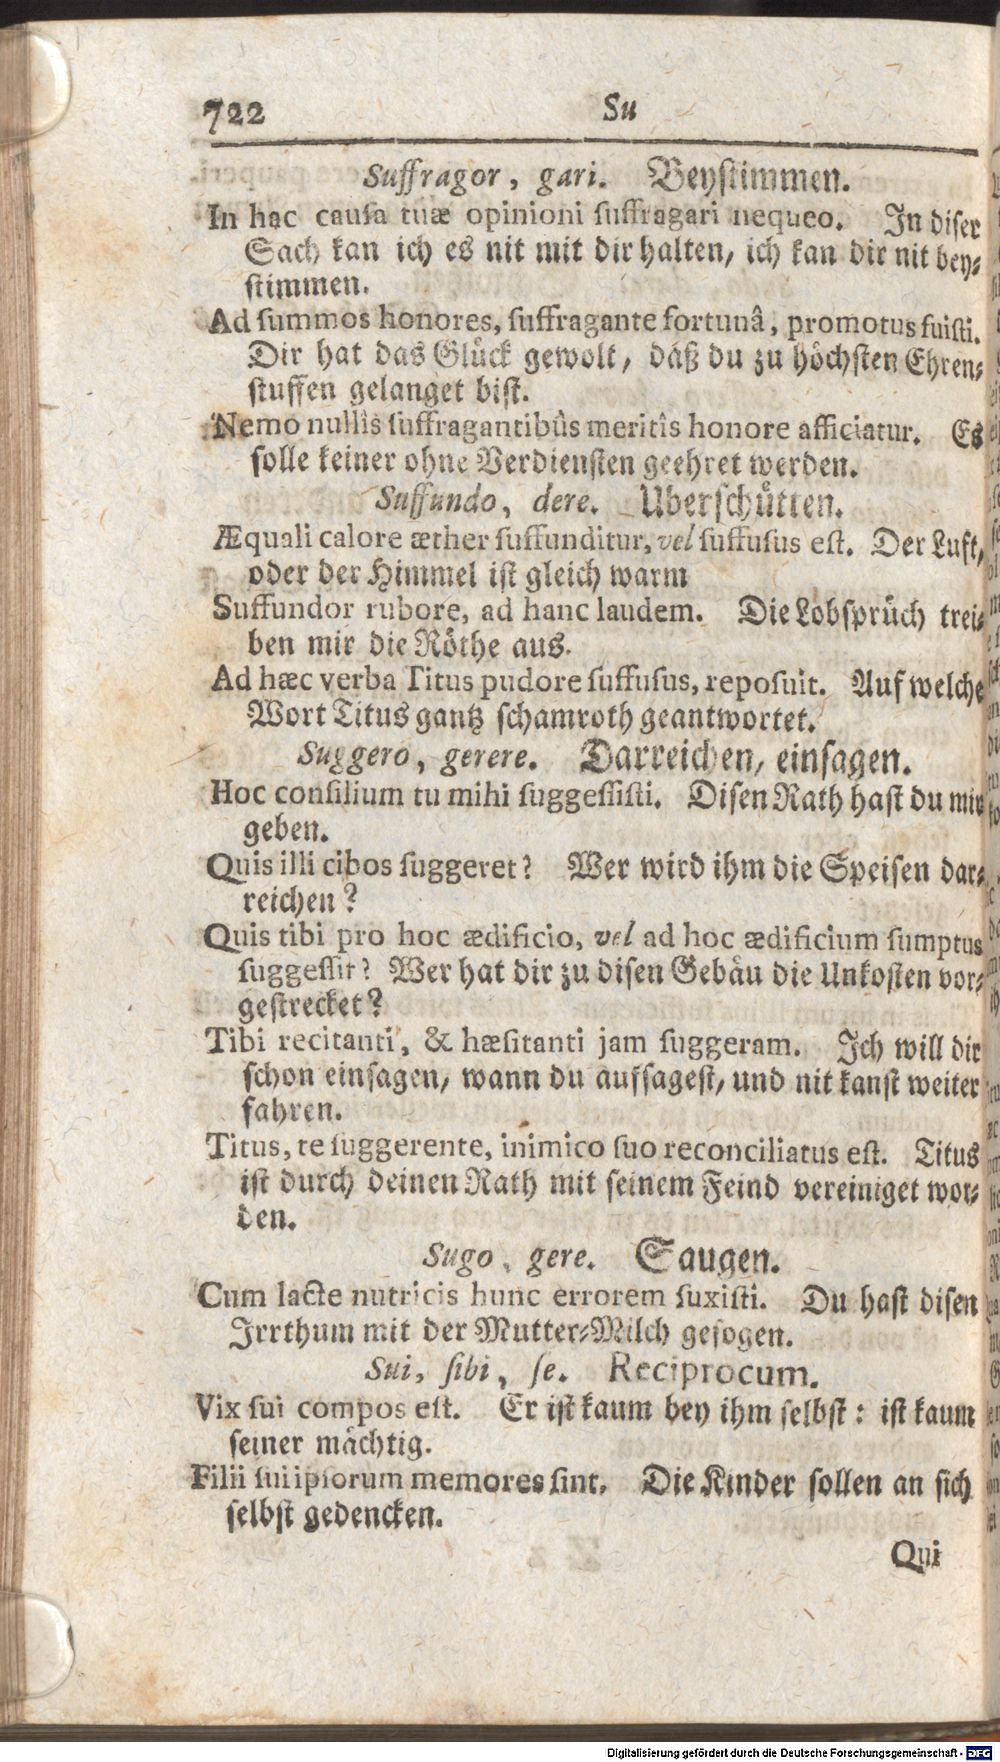 722 Su
Suffragor, gari. Beystimmen.
In hac causa tuæ opinioni suffragari nequeo. In diser
Sach kan ich es nit mit dir halten, ich kan dir nit bey-
stimmen.
Ad summos honores, suffragante fortunâ, promotus fuisti.
Dir hat das Glück gewolt, daß du zu höchsten Ehren-
stuffen gelanget bist.
Nemo nullîs suffragantibûs meritîs honore afficiatur. Es
solle keiner ohne Verdiensten geehret werden.
Suffundo, dere. Uberschütten.
Æquali calore æther suffunditur, vel suffusus est. Der Luft,
oder der Himmel ist gleich warm
Suffundor rubore, ad hanc laudem. Die Lobsprüch trei-
ben mir die Röthe aus.
Ad hæc verba Titus pudore suffusus, reposuit. Auf welche
Wort Titus gantz schamroth geantwortet.
Suggero, gerere. Darreichen, einsagen.
Hoc consilium tu mihi suggessisti. Disen Rath hast du mir
geben.
Quis illi cibos suggeret? Wer wird ihm die Speisen dar-
reichen?
Quis tibi pro hoc ædificio, vel ad hoc ædificium sumptus
suggessit? Wer hat dir zu disen Gebäu die Unkosten vor-
gestrecket?
Tibi recitanti, & hæsitanti jam suggeram. Ich will dir
schon einsagen, wann du aufsagest, und nit kanst weiter
fahren.
Titus, te suggerente, inimico suo reconciliatus est. Titus
ist durch deinen Rath mit seinem Feind vereiniget wor-
den.
Sugo, gere. Saugen.
Cum lacte nutricis hunc errorem suxisti. Du hast disen
Irrthum mit der Mutter-Milch gesogen.
Sui, sibi, se. Reciprocum.
Vix sui compos est. Er ist kaum bey ihm selbst: ist kaum
seiner mächtig.
Filii sui ipsorum memores sint. Die Kinder sollen an sich
selbst gedencken.
Qui
Digitalisierung gefördert durch die Deutsche Forschungsgemeinschaft - DFG